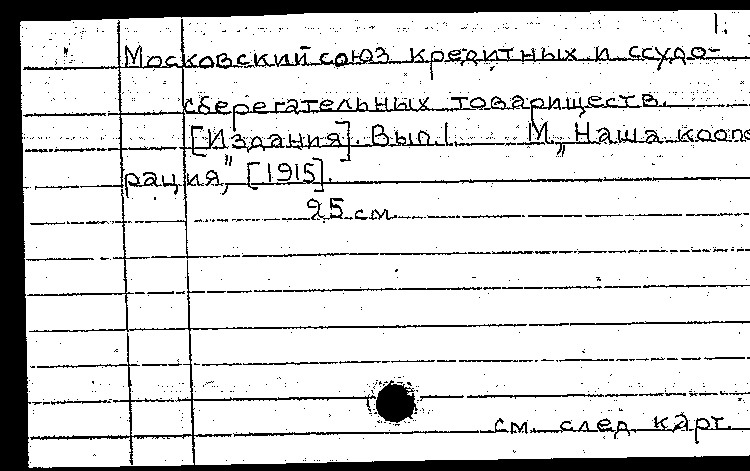 1.
Московский союз кредитных и ссудо-
сберегательных товариществ.
[Издания]. Вып.1. М. „Наша коопе
рация", [1915].
25 см.
см. след. карт.